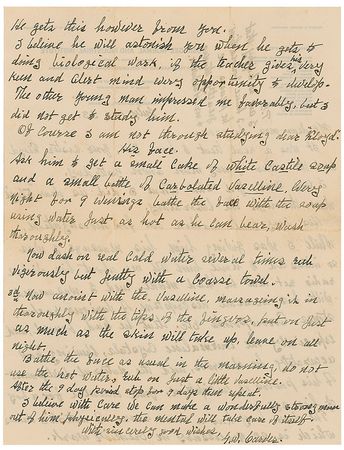 He gets this however from you.
I believe he will astonish you when he gets to
doing biological work, if the teacher gives his very
keen and alert mind every opportunity to develop.
The other young man impressed me favorably, but I
did not get to study him.
Of course I am not through studying dear Lloyd.
His face.
Ask him to get a small cake of white Castile soap
and a small bottle of Carbolated Vaseline. Every
night for 9 evenings bathe the face with the soap
using water just as hot as he can bear, wash
thoroughly
Now dash on real cold water several times rub
vigorously but gently with a coarse towel.
3d Now anoint with the Vaseline, massaging it in
thoroughly with the tips of the fingers, put on just
as much as the skin will take up, leave on all
night.
Bathe the face as usual in the morning, do not
use the hot water, rub on just a little vaseline.
After the 9 day period stop for 9 days then repeat.
I believe with care we can make a wonderfully strong man
out of him physically, the mental will take care of itself.
With sincerely good wishes,
G.W. Carver.